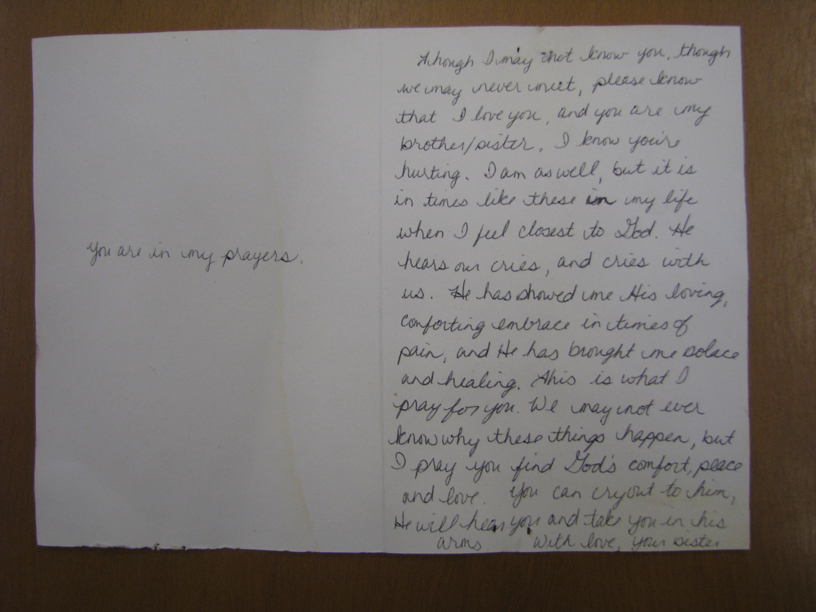 You are in my prayers.
Though I may not know you, though
we may never meet, please know
that I love you, and you are my
brother/sister. I know you're
hurting. I am as well, but it is
in times like these in my life
when I feel closest to God. He
hears our cries, and cries with
us. He has showed me His loving,
comforting embrace in times of
pain, and He has brought me solace
and healing. This is what I
pray for you. We may not ever
know why these things happen, but
I pray you find God's comfort, peace
and love. You can cry out to him,
He will hear you and take you in his
arms With love, your sister